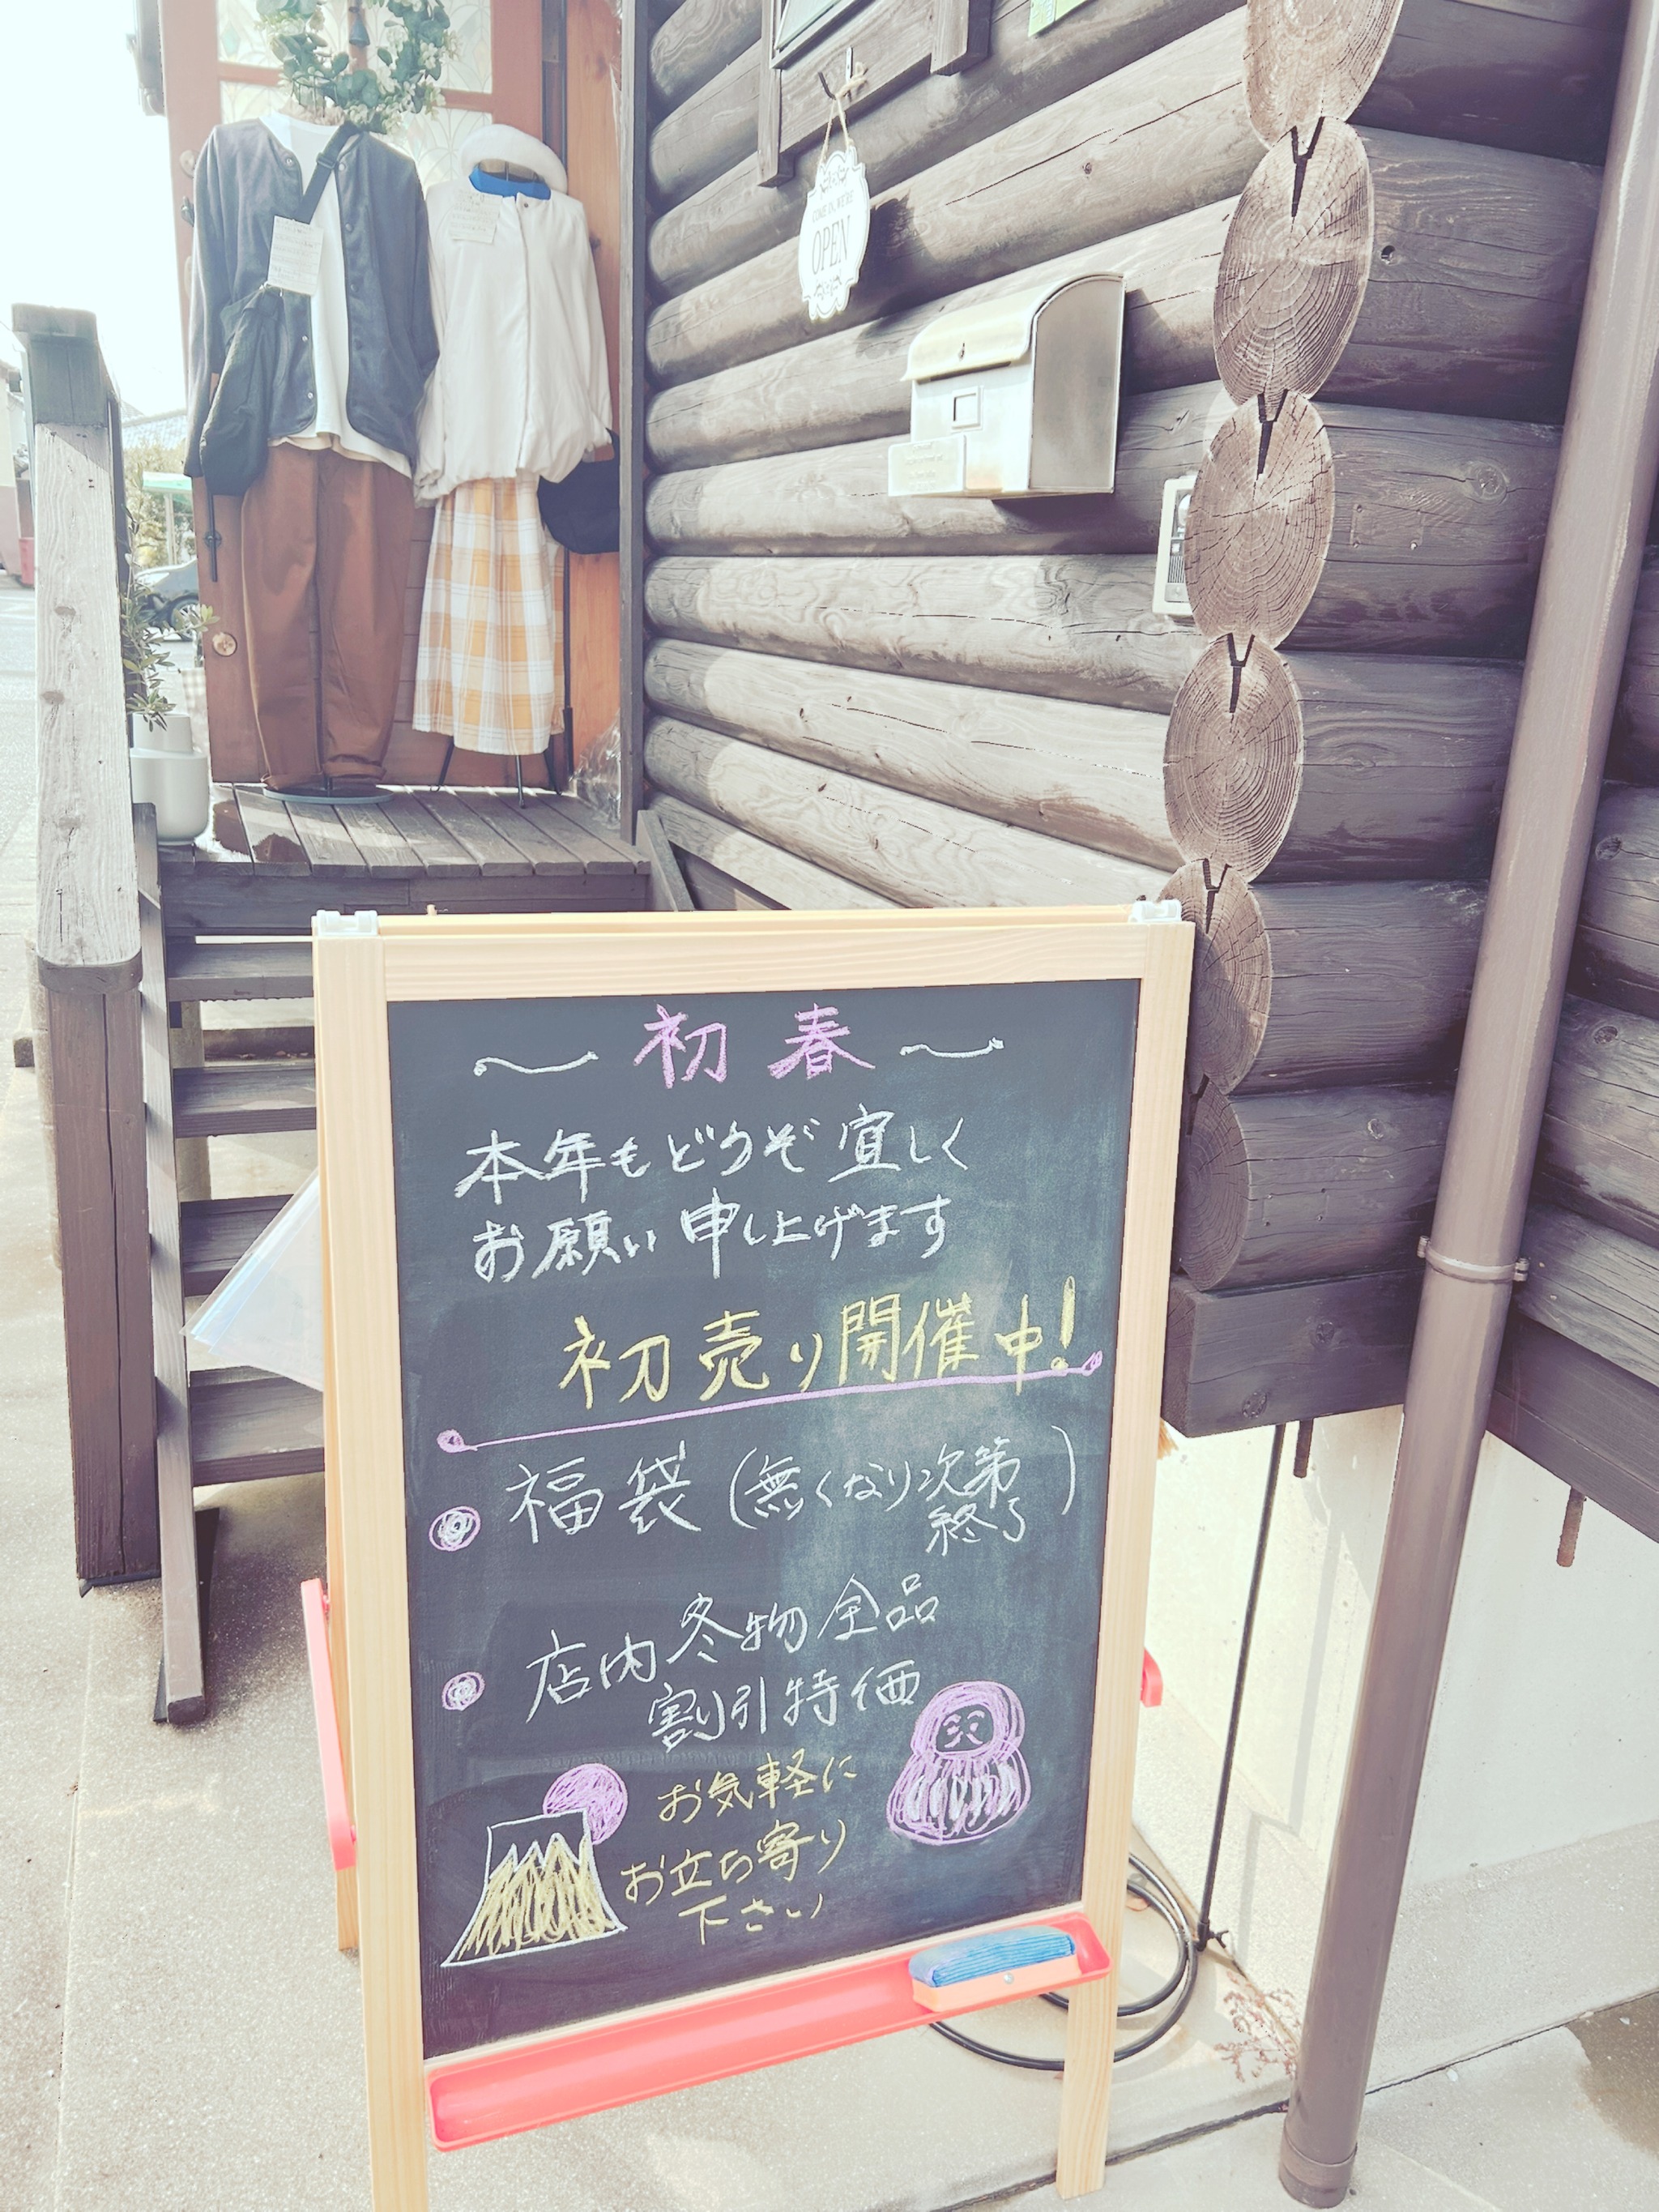 COME IN, WE'RE
OPEN
～初春～
本年もどうぞ宜しく
お願い申し上げます
初売り開催中!
福袋(無くなり次第
終了)
店内冬物全品
割引特価
お気軽に
お立ち寄り
下さい